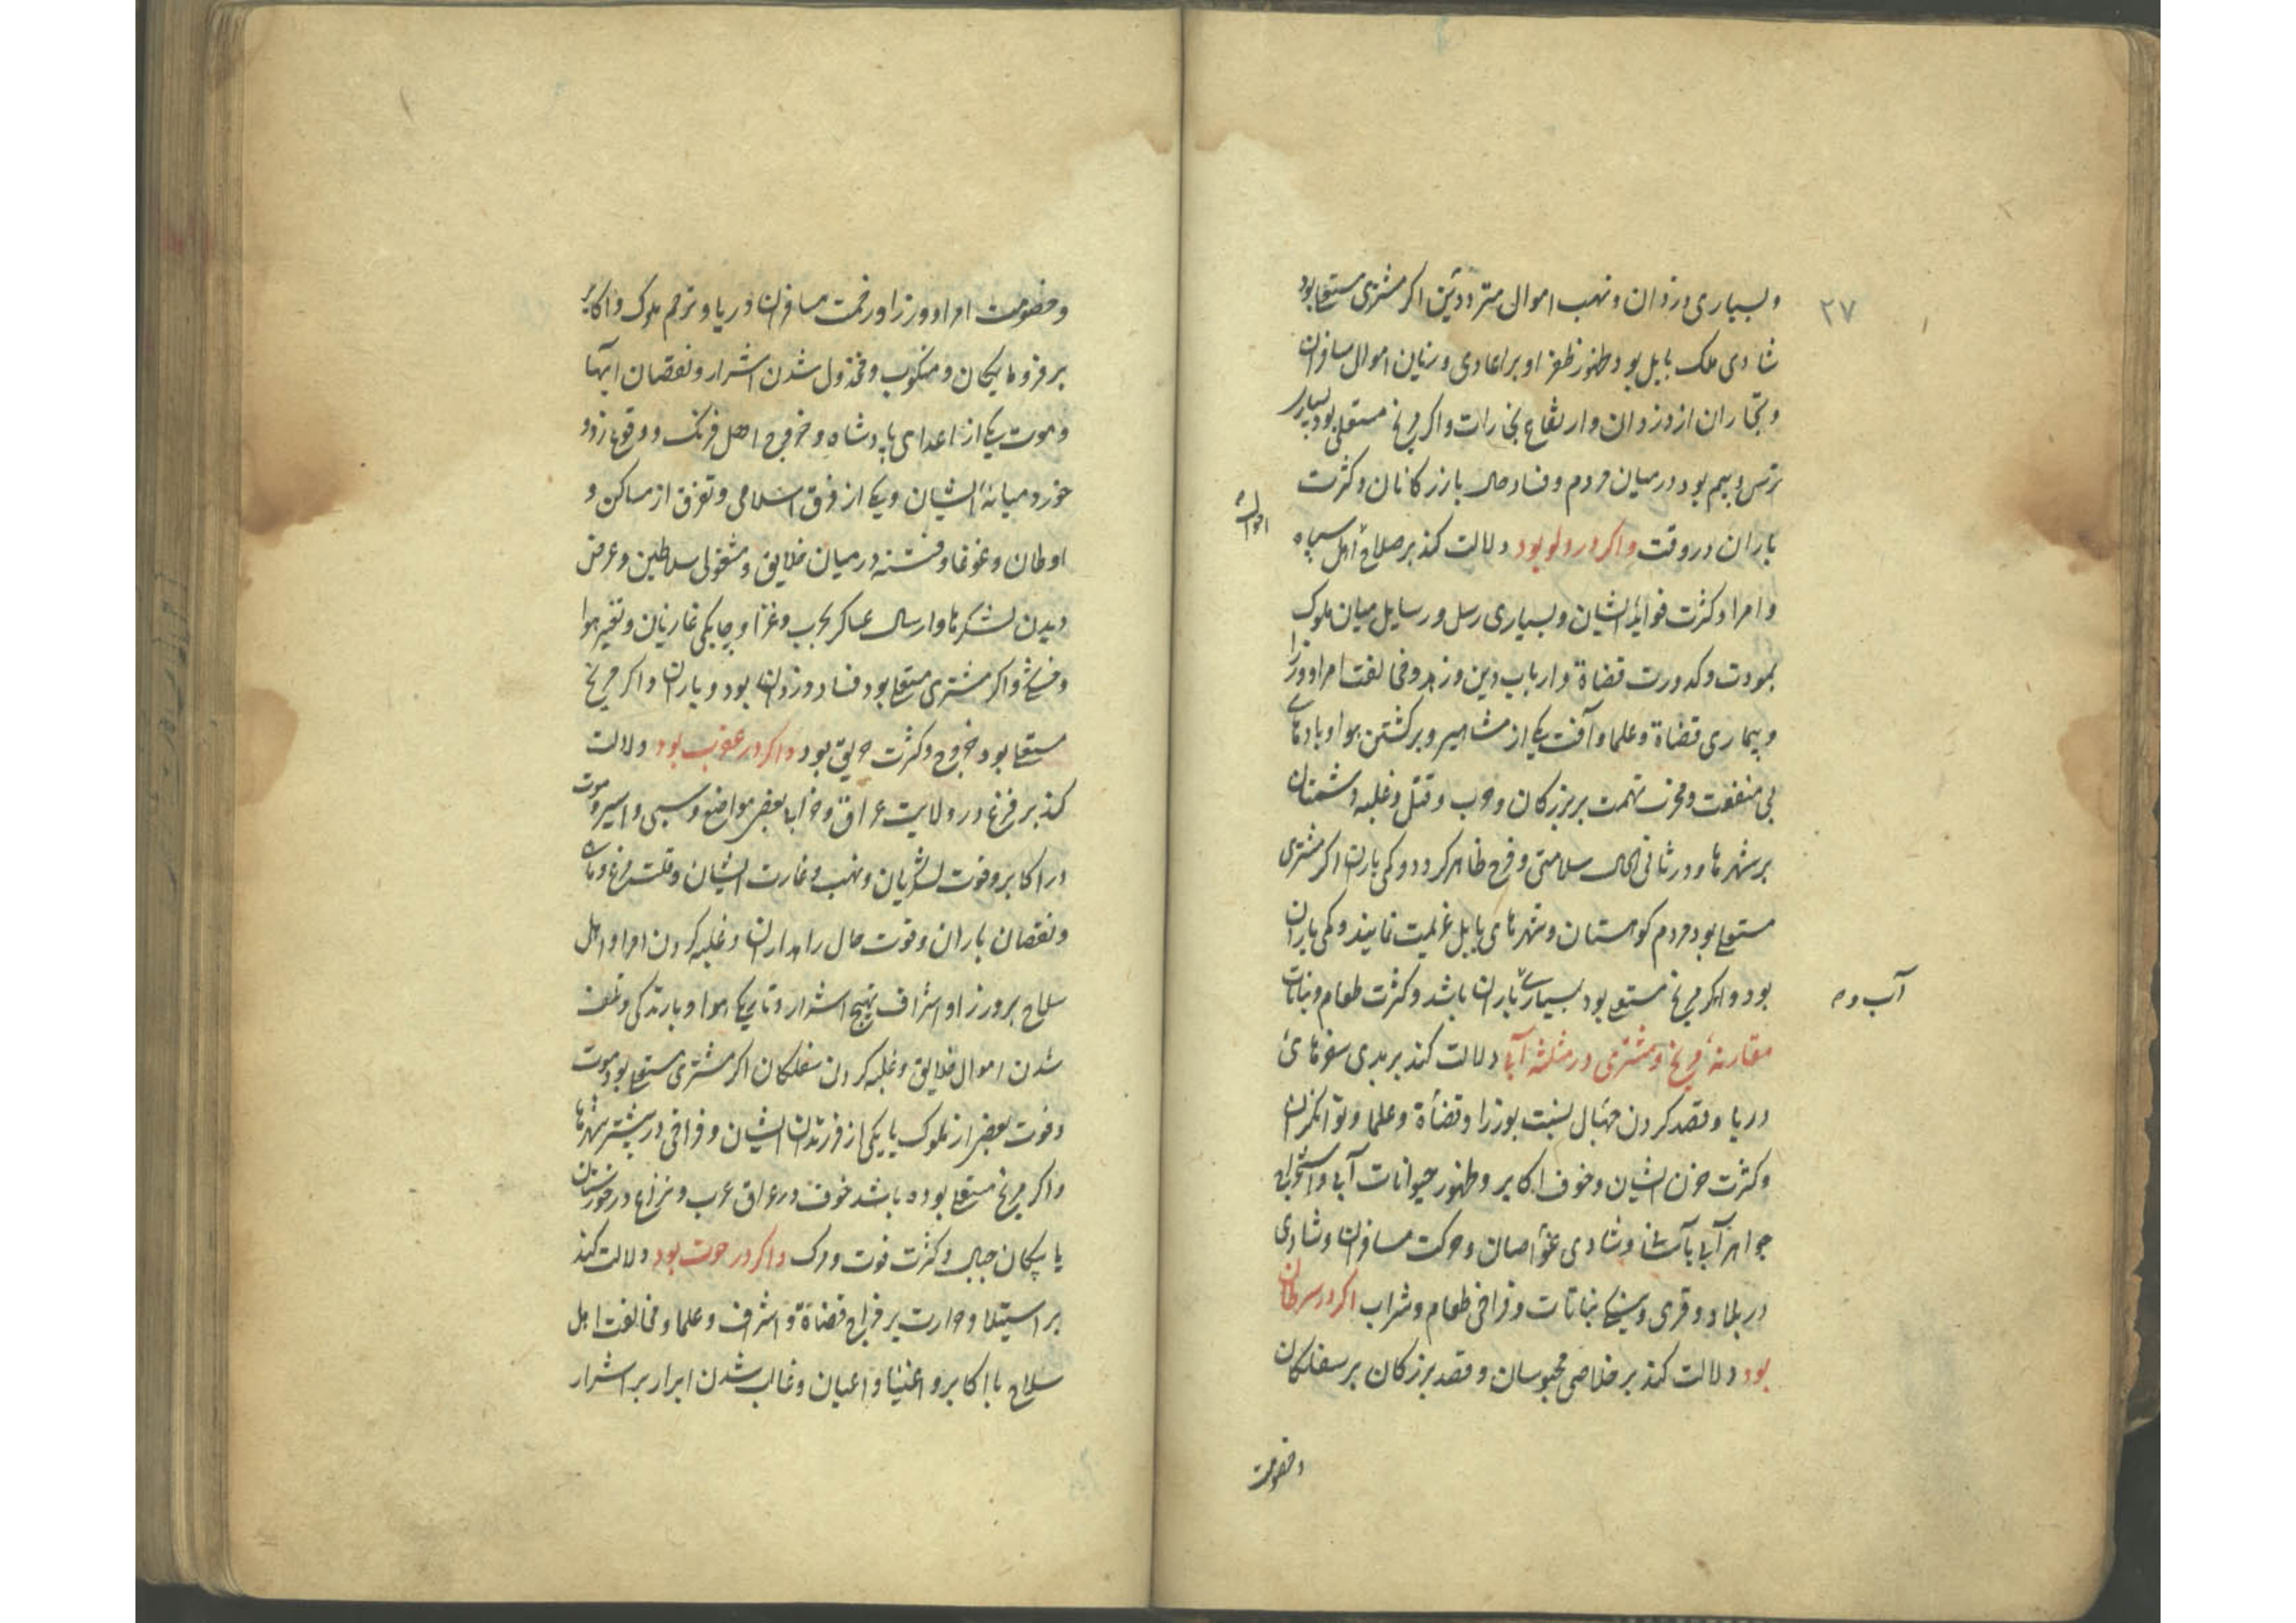 ۲۷
و بسیاری دزدان و نهب اموال مترددین اکر مشتری مستعلی بود
شادی ملک بابل بود و ظهور ظفر او بر اعادی و زیان اموال مسافران
و تجاران از دزدان و ارتفاع بخارات و اکر مریخ مستعلی بود بسیار
ترس و بیم بود در میان مردم و فساد حال بازرکانان و کثرت
باران در وقت واکر در دلو بود دلالت کند بر صلاح اهل سپاه
احوال
و امرا و کثرت فواید ایشان و بسیاری رسل و رسایل میان ملوک
بمودت و کدورت قضاة و ارباب دین و زهد و مخالفت امرا و وزرا
و بیماری قضاة و علما و آفت یکی از مشاهیر و برکشتن هوا و بادهای
بی منفعت و تهمت بر بزرکان و حرب و قتل و غلبه دشمنان
بر شهرها و در ثانی الحال سلامتی و فرح ظاهر کردد و کمی باران اکر مشتری
مستعلی بود مردم کوهستان و شهرهای بابل عزیمت نمایند و کمی باران
بود و اکر مریخ مستعلی بود بسیاری باران باشد و کثرت طعام و نباتات
آب و
مقارنهٔ مریخ و مشتری در مثلثه آبی دلالت کند بر بدی سفرهای
دریا و قصد کردن جهال بنسبت بوزرا و قضاة و علما و توانکران
و کثرت حزن ایشان و خوف اکابر و ظهور حیوانات آبی و استخراج
جواهر آبی باشد و شادی غواصان و حرکت مسافران و شادی
در بلاد و قری و نباتات و فراخی طعام و شراب اکر در سرطان
بود دلالت کند بر خلاصی محبوسان و قصد بزرکان بر سفلکان
و خصومت
و خصومت امرا و وزرا و زحمت مسافران دریا و ترحم ملوک و اکابر
بر فرومایکان و منکوب و مخذول شدن اشرار و نقصان آبها
و موت یکی از اعدای پادشاه و خروج اهل فرنک و وقوع زد و
خورد میانهٔ ایشان و یکی از فرق اسلامی و تفرق از مساکن و
اوطان و غوغا و فتنه در میان خلایق و مشغولی سلاطین و عرض
دیدن لشکرها و ارسال عساکر بحرب و غزا و چابکی غازیان و تغیر هوا
و اکر مشتری مستعلی بود فساد دزدان بود و باران و اکر مریخ
مستعلی بود خروج و کثرت حریق بود واکر در عقرب بود دلالت
کند بر فزع در ولایت عراق و خرابی بعضی مواضع و سبی و اسیر و موت
در اکابر و فوت لشکریان و نهب و غارت ایشان و قلت مرغ و ماهی
و نقصان باران و قوت حال راهداران و غلبه کردن امرا و اهل
سلاح بر وزرا و اشراف تهیج اشرار و تاریکی هوا و بارندکی و تلف
شدن اموال خلایق و غلبه کردن سفلکان اکر مشتری مستعلی بود موت
و فوت بعضی از ملوک یا یکی از فرزندان ایشان و فراخی در بیشتر شهرها
و اکر مریخ مستعلی بوده باشد خوف در عراق عرب و نزاع در خوزستان
یا جبال و کثرت فوت و مرک واکر در حوت بود دلالت کند
بر استیلا و حرارت بر مزاج قضاة و اشراف و علما و مخالفت اهل
سلاح با اکابر و اغنیا و اعیان و غالب شدن ابرار بر اشرار